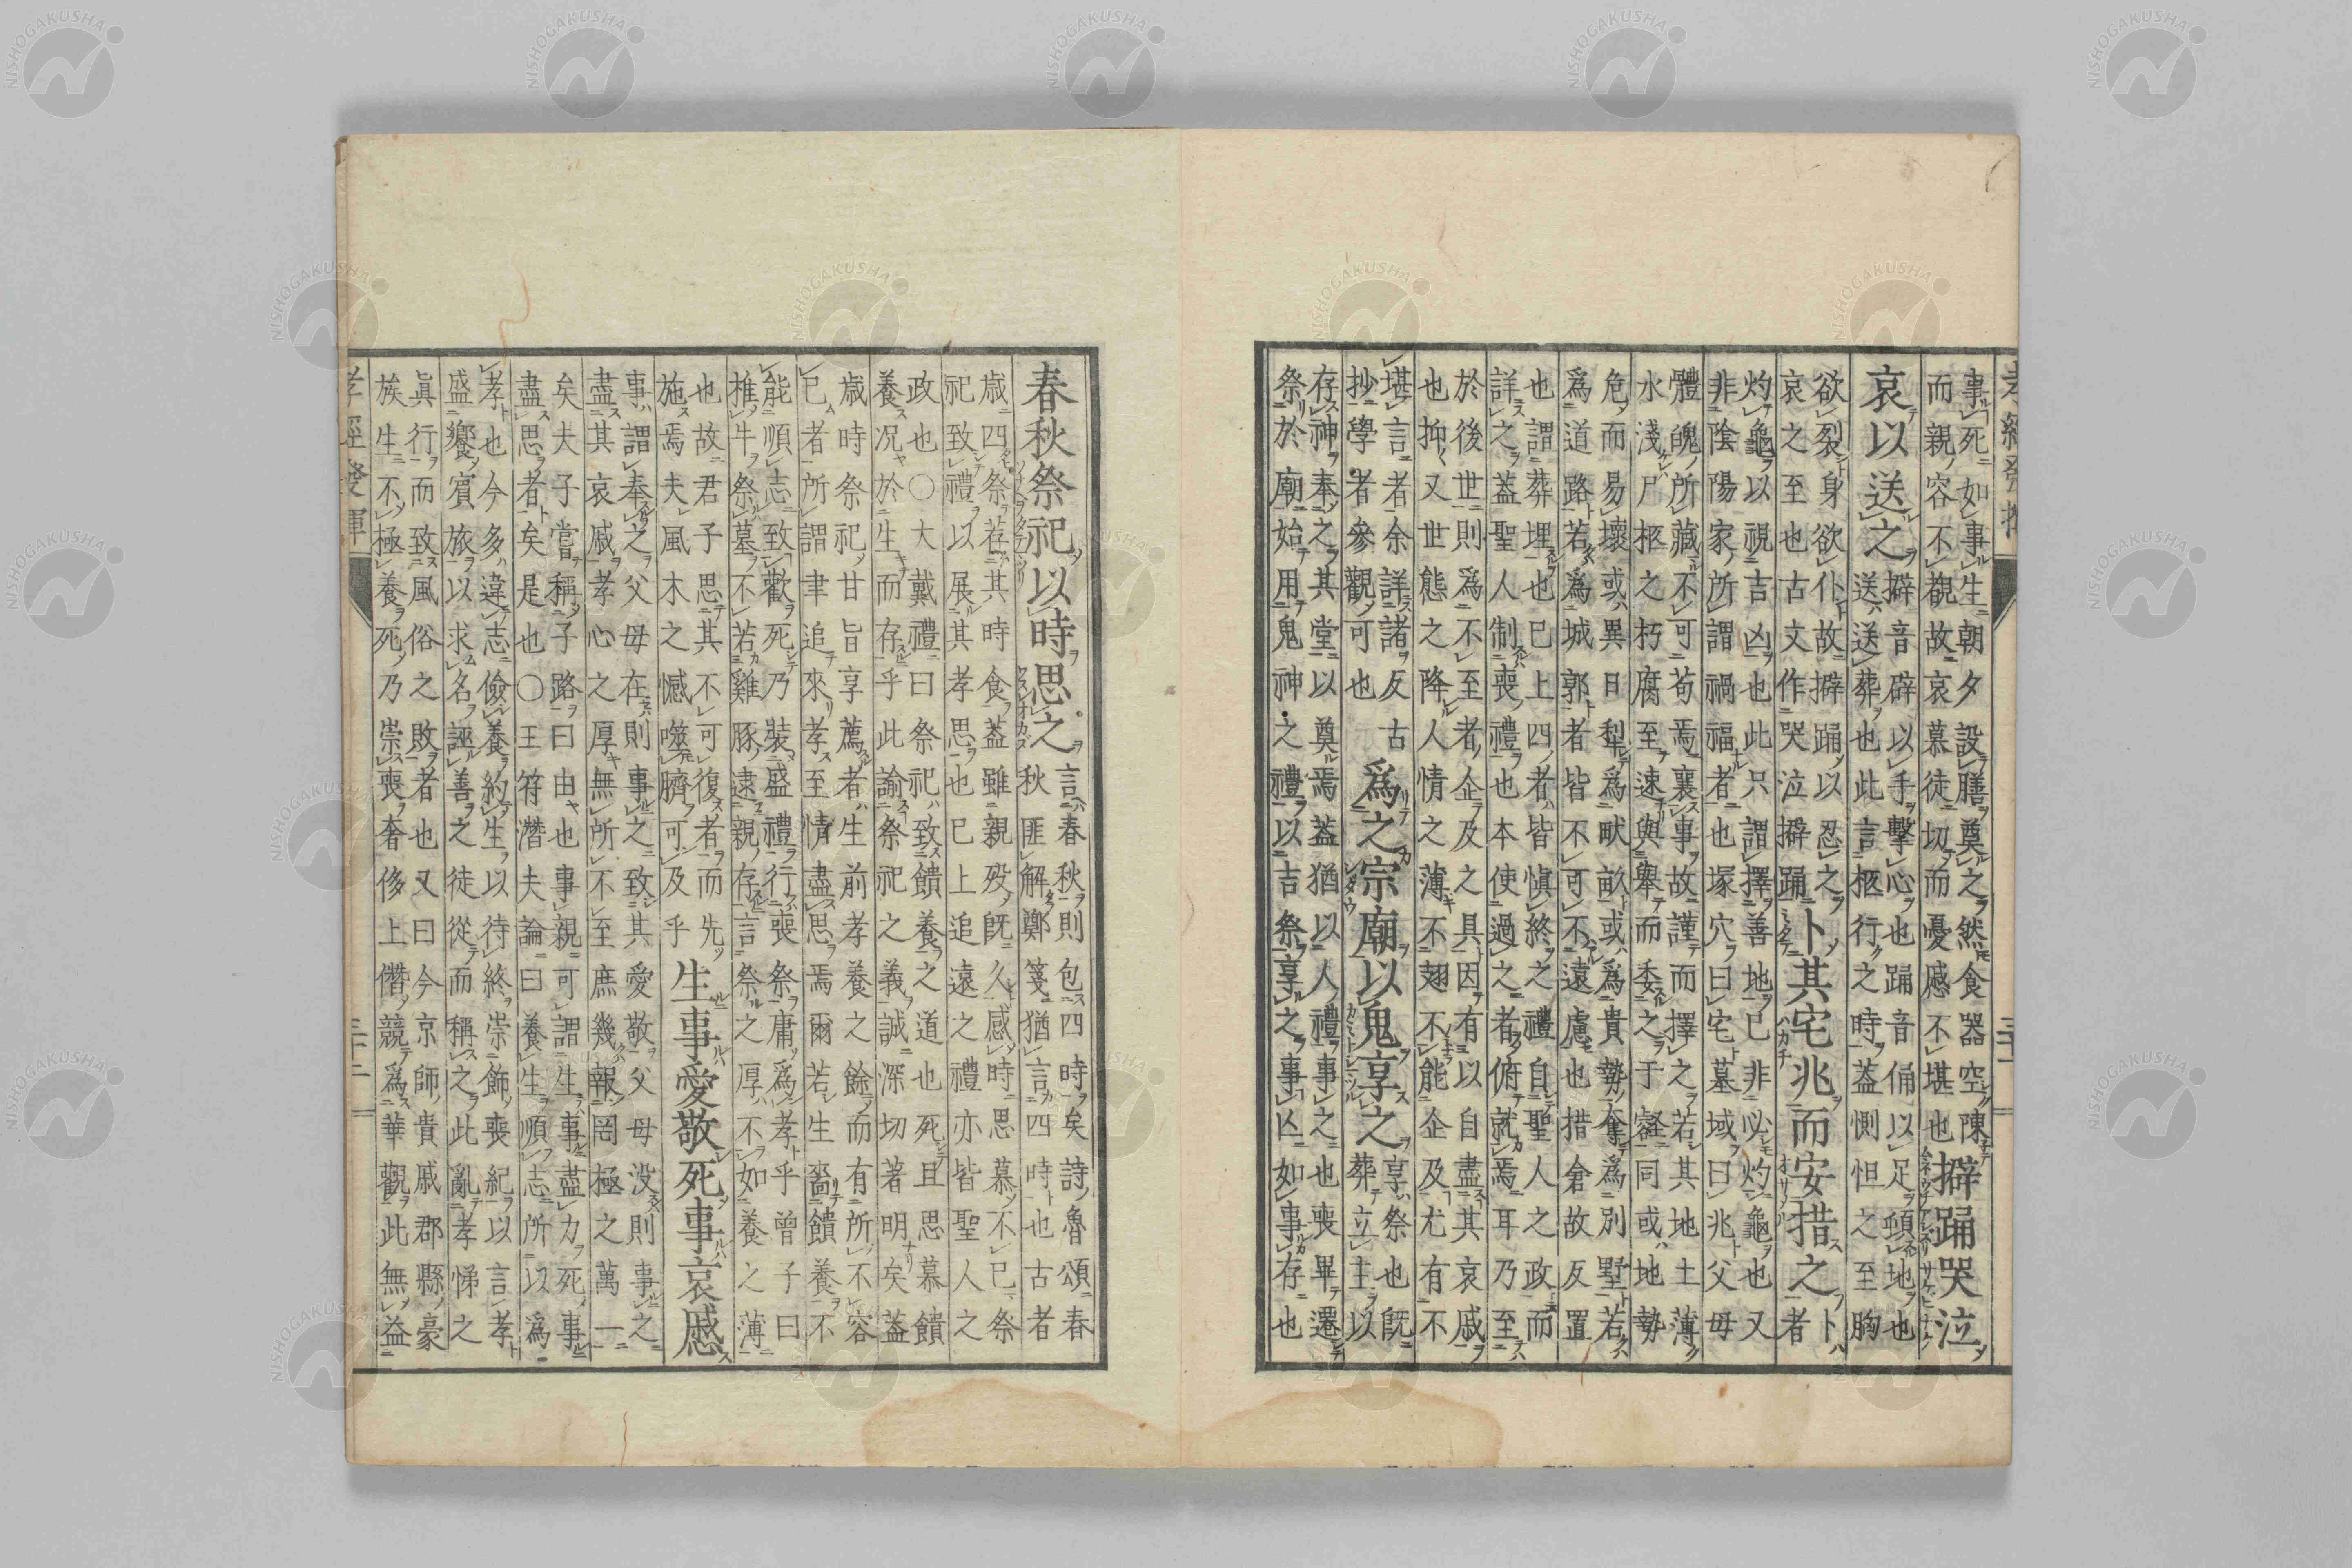 孝經發揮
三十一
事死如事生朝夕設膳奠之然食器空陳
而親容不覩故哀慕徒切而憂慼不堪也
擗踊哭泣
哀以送之
擗音辟以手擊心也踊音俑以足頓地也
送送葬也此言柩行之時蓋惻怛之至胸
欲裂身欲仆故擗踊以忍之
哀之至也古文作哭泣擗踊
卜其宅兆而安措之
卜
者
灼龜以視吉凶也此只謂擇善地已非必灼龜也又
非陰陽家所謂禍福者也塚穴曰宅墓域曰兆父母
體魄所藏不可苟焉襄事故謹而擇之若其地土薄
水淺尸柩之朽腐至速與舉而委之于壑同或地勢
危而易壞或異日犁爲畎畝或爲貴勢奪爲別墅若
爲道路若爲城郭者皆不可不遠慮也措倉故反置
也謂葬埋也已上四者皆愼終之禮自聖人之政而
詳之蓋聖人制喪禮也本使過之者俯就焉耳乃至
於後世則爲不至者企及之具因有以自盡其哀慼
也抑又世態之降人情之薄不翅不能企及尤有不
堪言者余詳諸反古
抄學者參觀可也
爲之宗廟以鬼享之
享祭也既
葬立主以
存神奉之其堂以奠焉蓋猶以人禮事之也喪畢遷
祭於廟始用鬼神之禮以吉祭享之事亾如事存也
春秋祭祀以時思之
言春秋則包四時矣詩魯頌春
秋匪解鄭箋猶言四時也古者
歳四祭荐其時食蓋雖親歿既久感時思慕不已祭
祀致禮以展其孝思也已上追遠之禮亦皆聖人之
政也○大戴禮曰祭祀致饋養之道也死且思慕饋
養况於生而存乎此諭祭祀之義誠深切著明矣蓋
歳時祭祀甘旨享薦者生前孝養之餘而有所不容
已者所謂聿追來孝至情盡思焉爾若生嗇饋養不
能順志致歡死乃裝盛禮行喪祭庸爲孝乎曾子曰
椎牛祭墓不若雞豚逮親存言祭之厚不如養之薄
也故君子思其不可復者而先
施焉夫風木之憾噬臍可及乎
生事愛敬死事哀慼
事謂奉之父母在則事之致其愛敬父母没則事之
盡其哀戚孝心之厚無所不至庶幾報罔極之萬一
矣夫子嘗稱子路曰由也事親可謂生事盡力死事
盡思者矣是也○王符潛夫論曰養生順志所以爲
孝也今多違志儉養約生以待終崇飾喪紀以言孝
盛饗賓旅以求名誣善之徒從而稱之此亂孝悌之
眞行而致風俗之敗者也又曰今京師貴戚郡縣豪
族生不極養死乃崇喪奢侈上僭競爲華觀此無益
孝經發揮
三十二